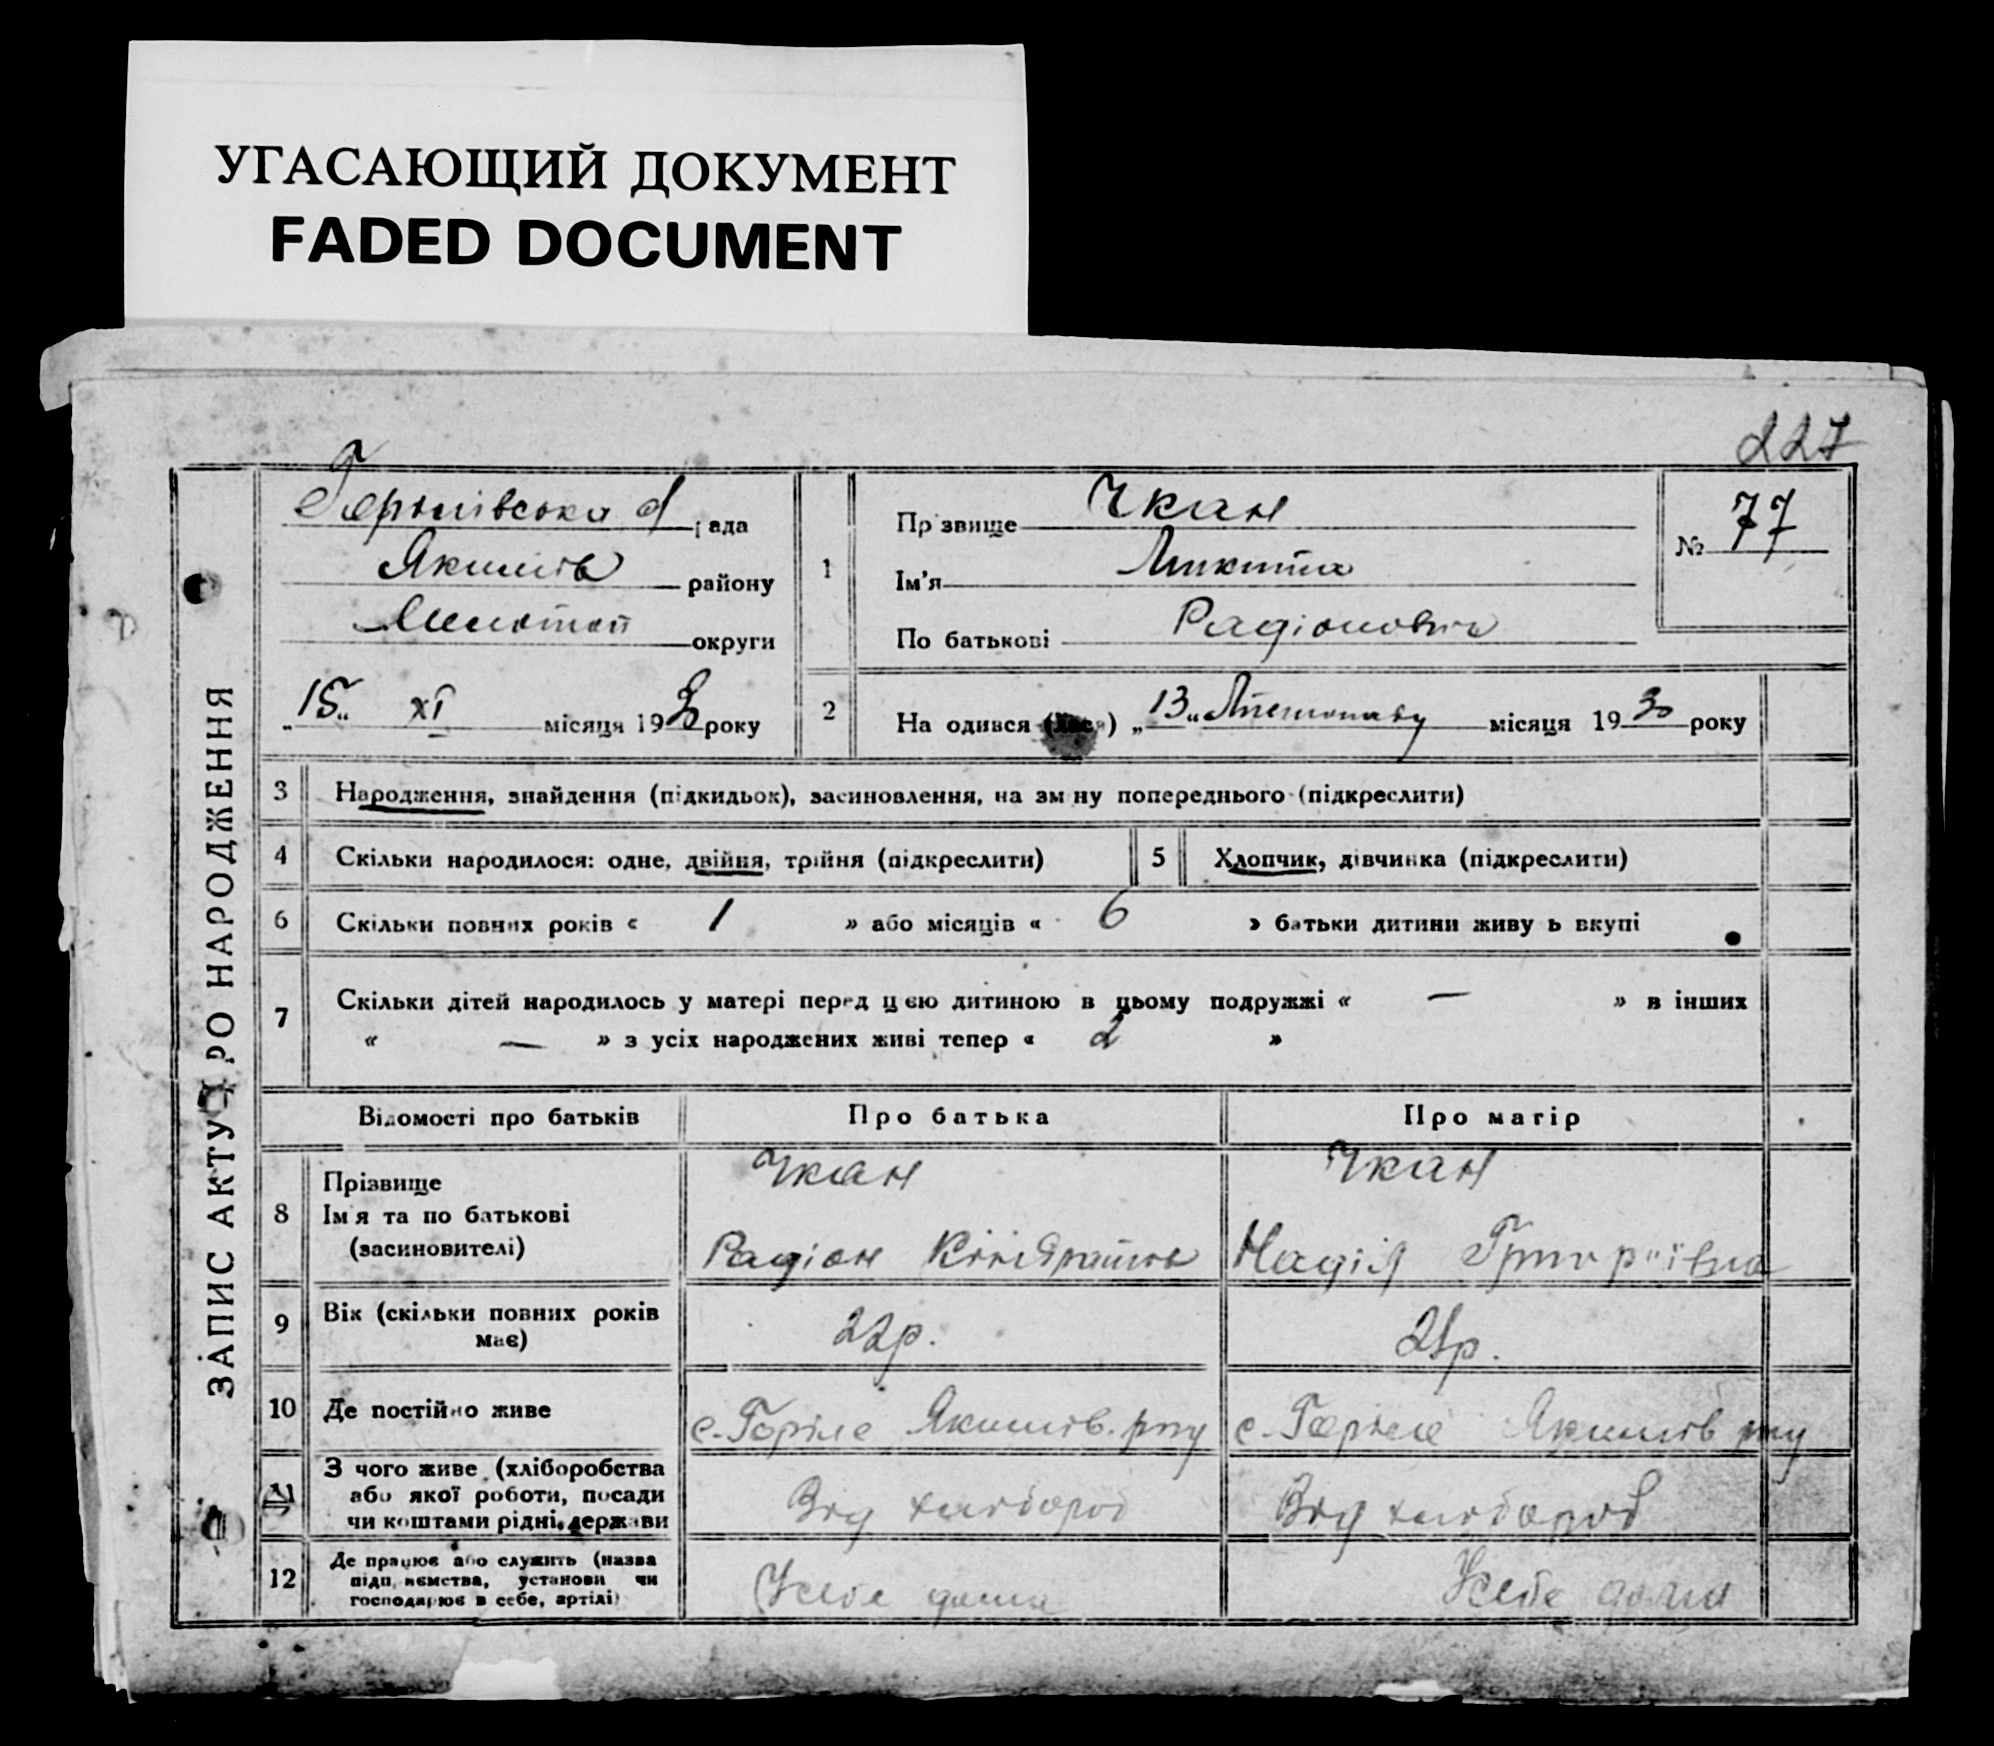 УГАСАЮЩИЙ ДОКУМЕНТ
FADED DOCUMENT
227
ЗАПИС АКТУ ПРО НАРОДЖЕННЯ
рада
Якимів району
округи
„15“ XI місяця 1930 року
1
Прізвище Чкан
Ім'я Микита
По батькові Радіонович
№ 77
2 Народився (лася) „13“ Листопаду місяця 1930 року
3 Народження, знайдення (підкидьок), засиновлення, на зміну попереднього (підкреслити)
4 Скільки народилося: одне, двійня, трійня (підкреслити)
5 Хлопчик, дівчинка (підкреслити)
6 Скільки повних років « 1 » або місяців « 6 » батьки дитини живуть вкупі
7 Скільки дітей народилось у матері перед цією дитиною в цьому подружжі « — » в інших
« — » з усіх народжених живі тепер « 2 »
Відомості про батьків Про батька Про матір
8 Прізвище
Ім'я та по батькові
(засиновителі)
Чкан
Радіон
Чкан
Надія Григоріївна
9 Вік (скільки повних років
має)
22р.
21р.
10 Де постійно живе
с. Горіле Якимів. р-ну
с. Горіле Якимів р-ну
11 З чого живе (хліборобства
або якої роботи, посади
чи коштами рідні, держави
Від хлібороб
Від хлібороб
12 Де працює або служить (назва
підприємства, установи чи
господарює в себе, артілі)
У себе дома
У себе дома